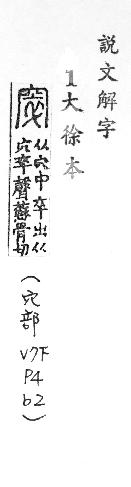 說文解字
1大徐本
窣
从穴中卒出从
穴卒聲蘇骨切
(穴部
V7下
P4
b2)